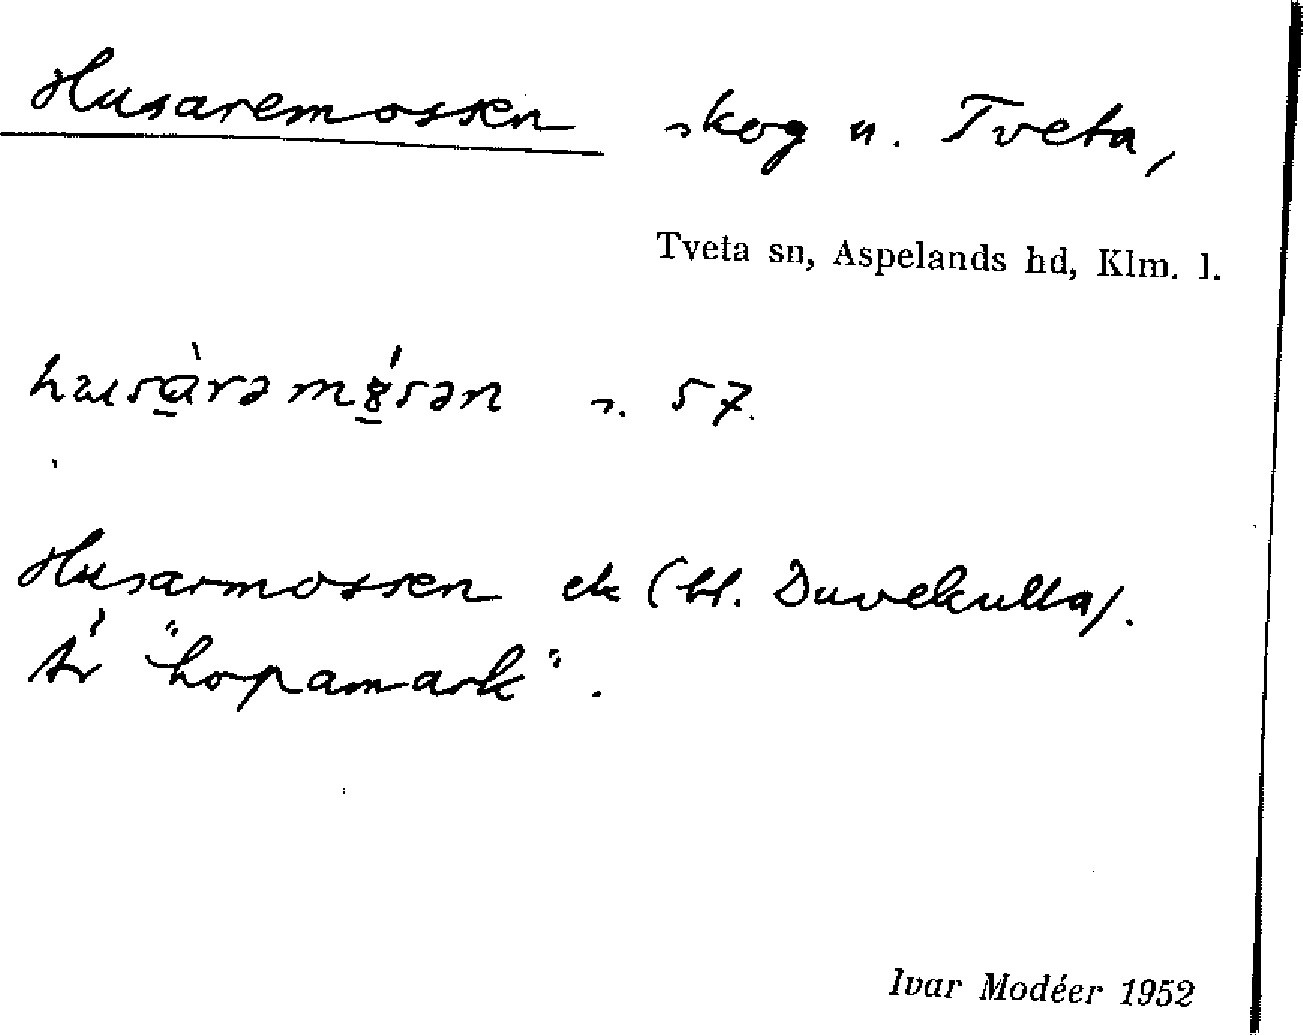 Husaremossen skog u. Tveta,
Tveta sn, Aspelands hd, Klm. l.
s. 57.
Husarmossen ek (bl. Duvekulla).
är "hopamark".
Ivar Modéer 1952